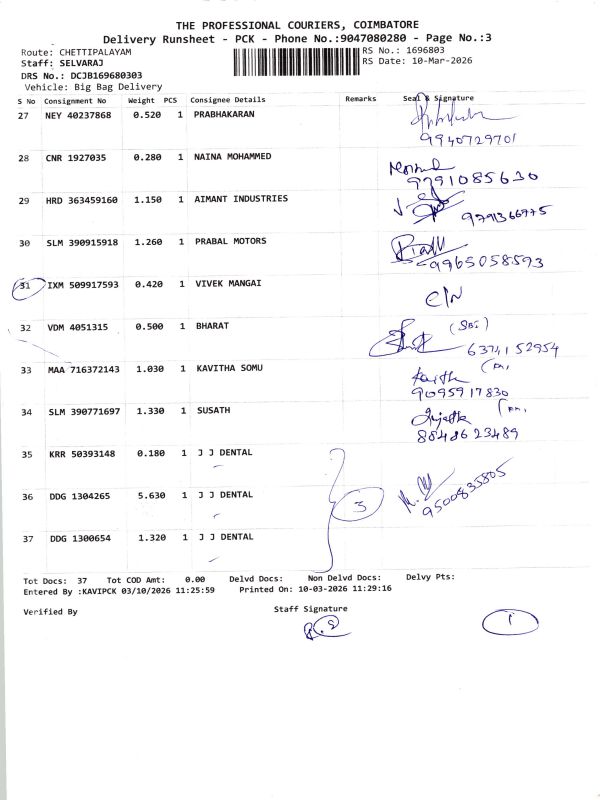 THE PROFESSIONAL COURIERS, COIMBATORE
Delivery Runsheet - PCK - Phone No.:9047080280 - Page No.:3
Route: CHETTIPALAYAM RS No.: 1696803
Staff: SELVARAJ RS Date: 10-Mar-2026
DRS No.: DCJB169680303
Vehicle: Big Bag Delivery
S No Consignment No Weight PCS Consignee Details Remarks Seal & Signature
27 NEY 40237868 0.520 1 PRABHAKARAN
9940729701
28 CNR 1927035 0.280 1 NAINA MOHAMMED
9791085630
29 HRD 363459160 1.150 1 AIMANT INDUSTRIES
9791366775
30 SLM 390915918 1.260 1 PRABAL MOTORS
9965058593
31 IXM 509917593 0.420 1 VIVEK MANGAI
C/N
32 VDM 4051315 0.500 1 BHARAT
6374152954
33 MAA 716372143 1.030 1 KAVITHA SOMU
Kavitha
9095917830
34 SLM 390771697 1.330 1 SUSATH
8848623489
35 KRR 50393148 0.180 1 J J DENTAL
36 DDG 1304265 5.630 1 J J DENTAL 3 9500835805
37 DDG 1300654 1.320 1 J J DENTAL
Tot Docs: 37 Tot COD Amt: 0.00 Delvd Docs: Non Delvd Docs: Delvy Pts:
Entered By :KAVIPCK 03/10/2026 11:25:59 Printed On: 10-03-2026 11:29:16
Verified By Staff Signature
1